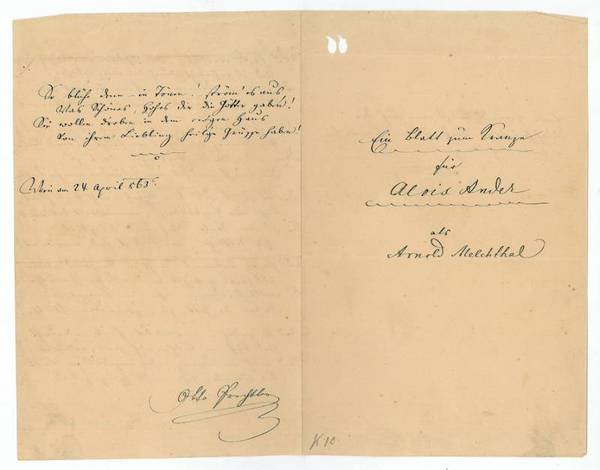 So blüh' denn in Tönen! ström' es aus
Was Schönes, Hohes dir die Götter gaben!
Sie wollen droben in dem ew'gen Haus
Von ihrem Liebling heil'ge Grüße haben!
Wien am 24. April 863.
Otto Prechtler
Ein Blatt zum Kranze
für
Alois Ander
als
Arnold Melchthal
K 10